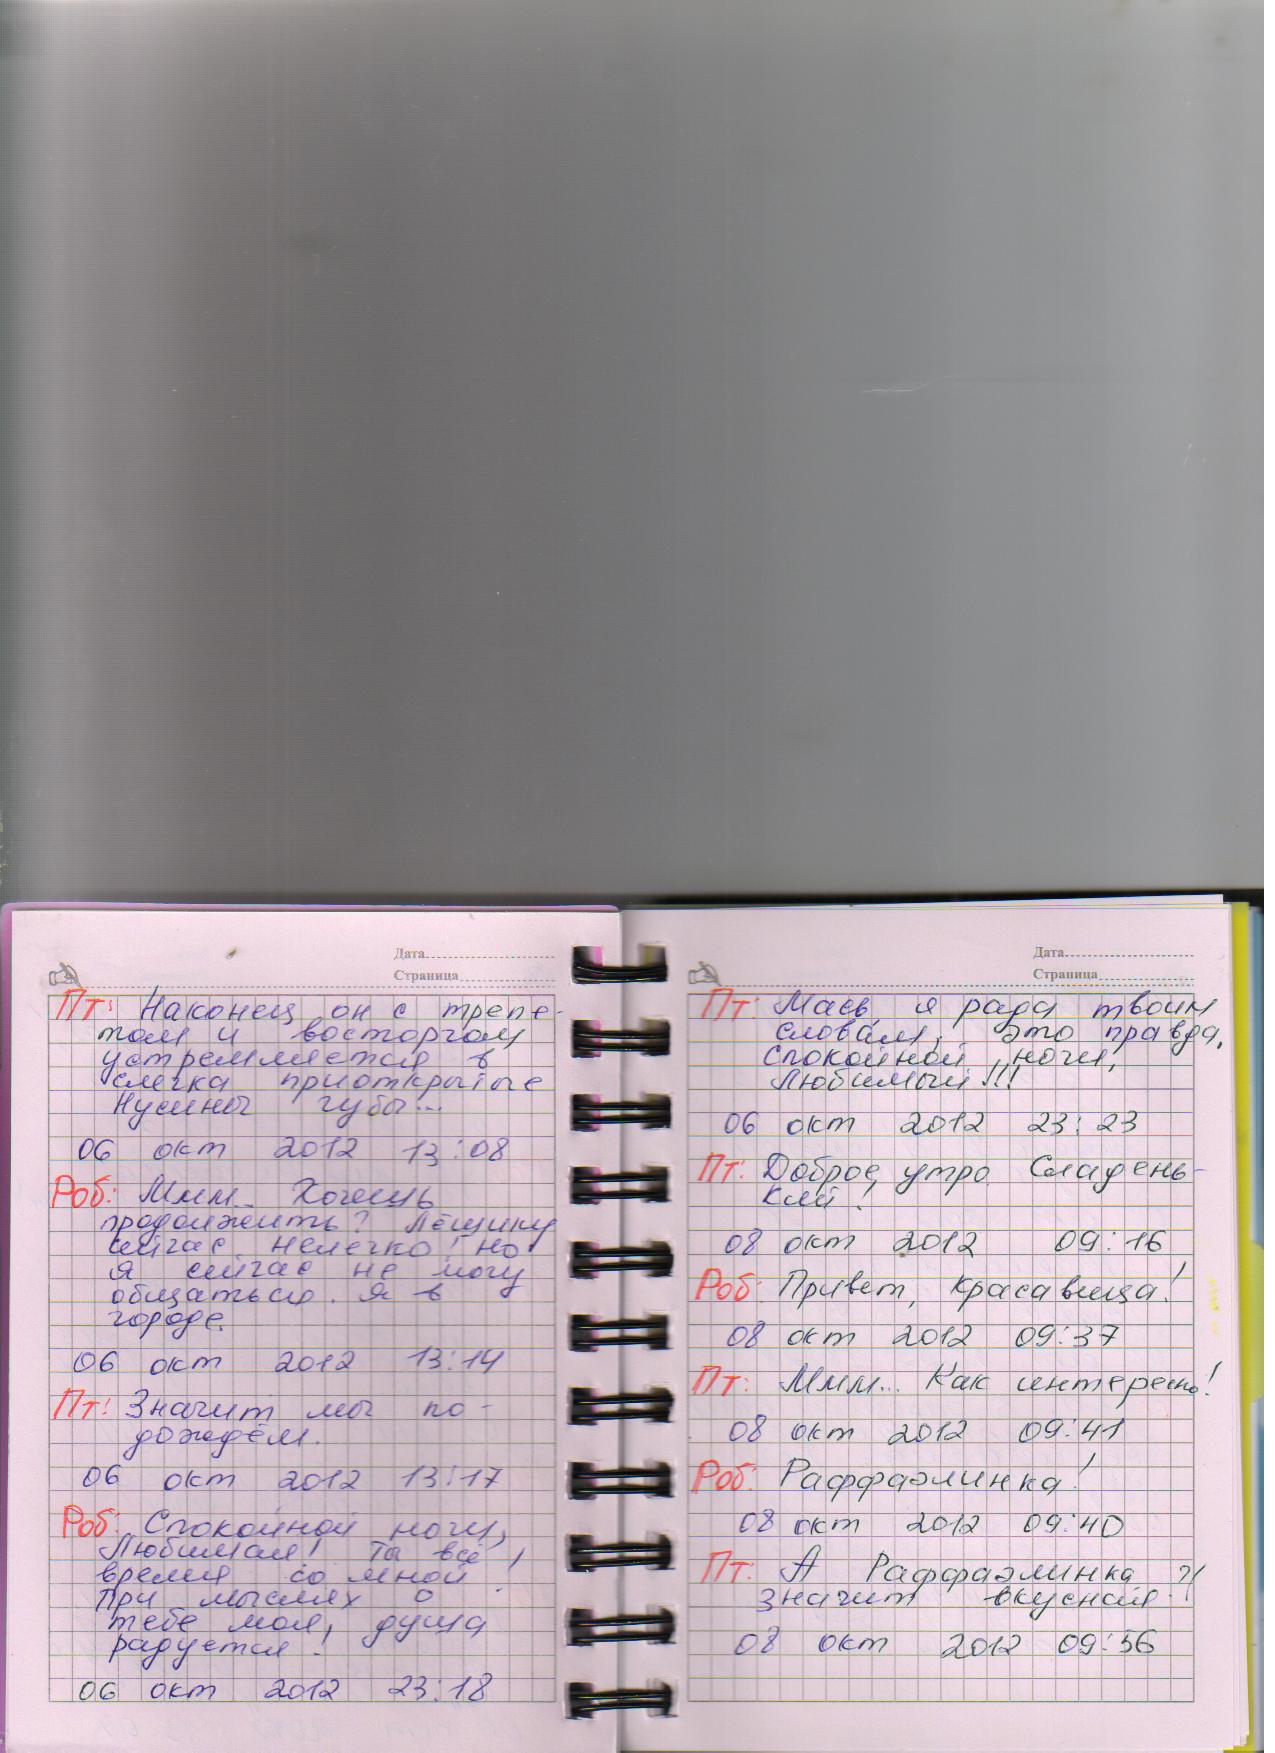 Дата
Страница
Пт: Наконец он с трепе-
том и восторгом
устремляется в
слегка приоткрытые
Нусины губы...
06 окт 2012 13:08
Роб: Ммм... Хочешь
продолжить? Лёщику
сейчас нелегко! но
я сейчас не могу
общаться. Я в
городе.
06 окт 2012 13:14
Пт: Значит мы по-
дождём.
06 окт 2012 13:17
Роб: Спокойной ночи,
Любимая! Ты всё
время со мной!
При мыслях о
тебе моя, душа
радуется!
06 окт 2012 23:18
Дата
Страница
Пт: я рада твоим
словам, это правда,
спокойной ночи,
Любимый!!!
06 окт 2012 23:23
Пт: Доброе утро Сладень-
кий!
08 окт 2012 09:16
Роб: Привет, красавица!
08 окт 2012 09:37
Пт: Ммм... Как интересно!
08 окт 2012 09:41
Роб: Раффаэлинка!
08 окт 2012 09:40
Пт: А Раффаэлинка
значит вкусная?!
08 окт 2012 09:56